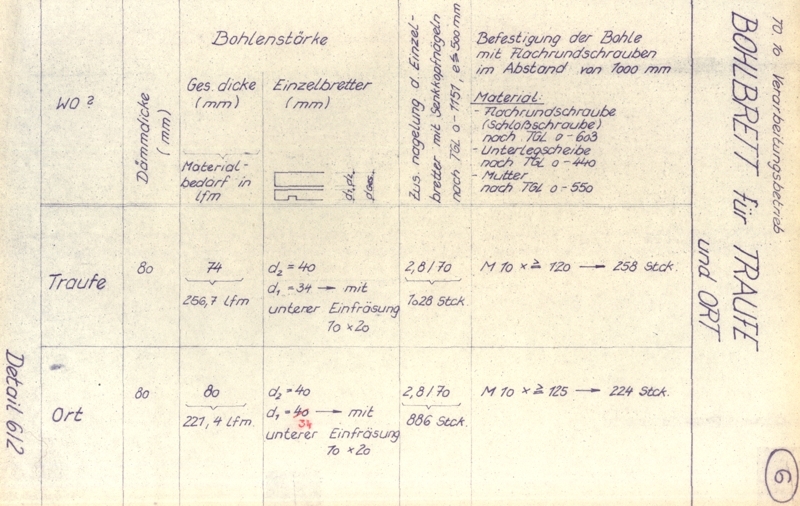 TO. 10 Verarbeitungsbetrieb
BOHLBRETT für TRAUFE
und ORT
WO ?
Dämmdicke
(mm)
Bohlenstärke
Ges. dicke
(mm)
Material-
bedarf in
lfm
Einzelbretter
(mm)
d1, d2
dges.
Zus. nagelung d. Einzel-
bretter mit Senkkopfnägeln
nach TGL 0-1151, e ≦ 500 mm
Befestigung der Bohle
mit Flachrundschrauben
im Abstand von 1000 mm
Material:
- Flachrundschraube
(Schloßschraube)
nach TGL 0-603
- Unterlegscheibe
nach TGL 0-440
- Mutter
nach TGL 0-550
Traufe
80
74
256,7 lfm
d2 = 40
d1 = 34 → mit
unterer Einfräsung
10 x 20
2,8/70
1028 Stck.
M 10 x ≧ 120 → 258 Stck.
Ort
80
80
221,4 lfm.
d2 = 40
d1 = 40 → mit
34
unterer Einfräsung
10 x 20
2,8/70
886 Stck.
M 10 x ≧ 125 → 224 Stck.
Detail 6/2
6